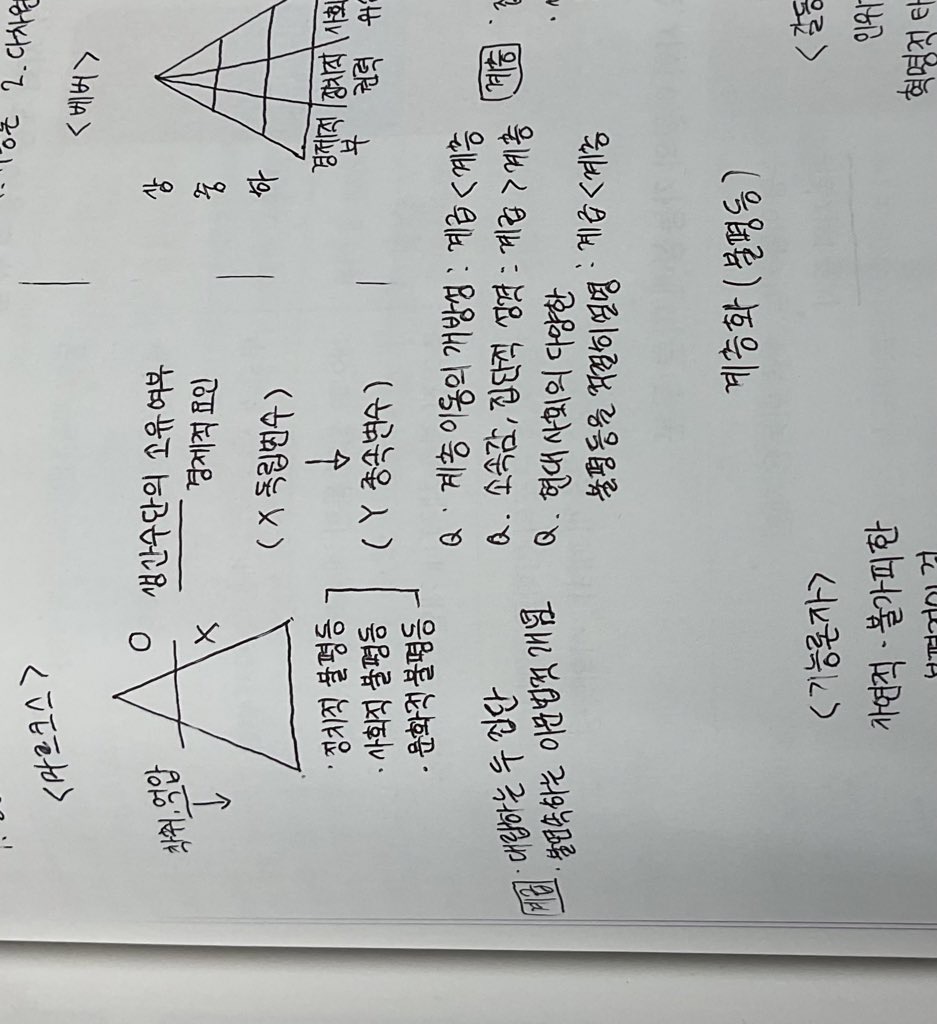 2. 다차원
<마르크스>
<베버>
착취.억압
↓
O
X
생산수단의 소유 여부
경제적 요인
상
중
하
(X 독립변수)
↓
(Y 종속변수)
· 정치적 불평등
· 사회적 불평등
· 문화적 불평등
경제적 | 정치적 | 사회
부 권력 위
Q. 계층 이동의 개방성 : 계급 < 계층
Q. 소속감, 집단적 성격 : 계급 > 계층
Q. 현대 사회의 다양한
불평등을 저절히 설명 : 계급 < 계층
계급 · 대립하는 두 집단
· 불연속하는 이분법적 개념
계층
계층화 (불평등)
<기능론자>
자연적 · 불가피한
<갈등
인위
혁명적 타